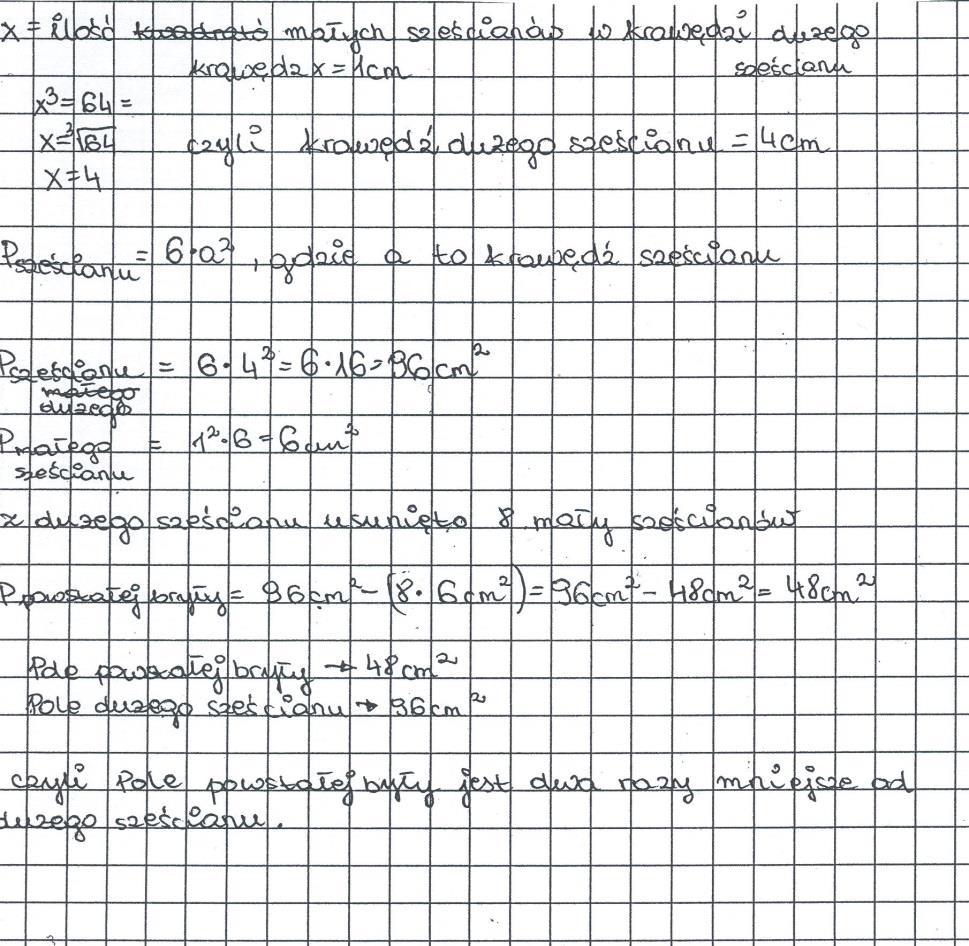 x = ilość kwadrató małych sześcianów w krawędzi dużego
krawędz x = 1cm sześcianu
x³ = 64 =
x = ³√64 czyli krawędź dużego sześcianu = 4cm
x = 4
Psześcianu = 6·a², gdzie a to krawędź sześcianu
Psześcianu = 6·4² = 6·16 = 96cm²
małego
dużego
Pmałego = 1²·6 = 6cm²
sześcianu
z dużego sześcianu usunięto 8 mały sześcianów
Ppowstałej bryły = 96cm² - (8·6cm²) = 96cm² - 48cm² = 48cm²
Pole powstałej bryły → 48cm²
Pole dużego sześcianu → 96cm²
czyli Pole powstałej były jest dwa razy mniejsze od
dużego sześcianu.